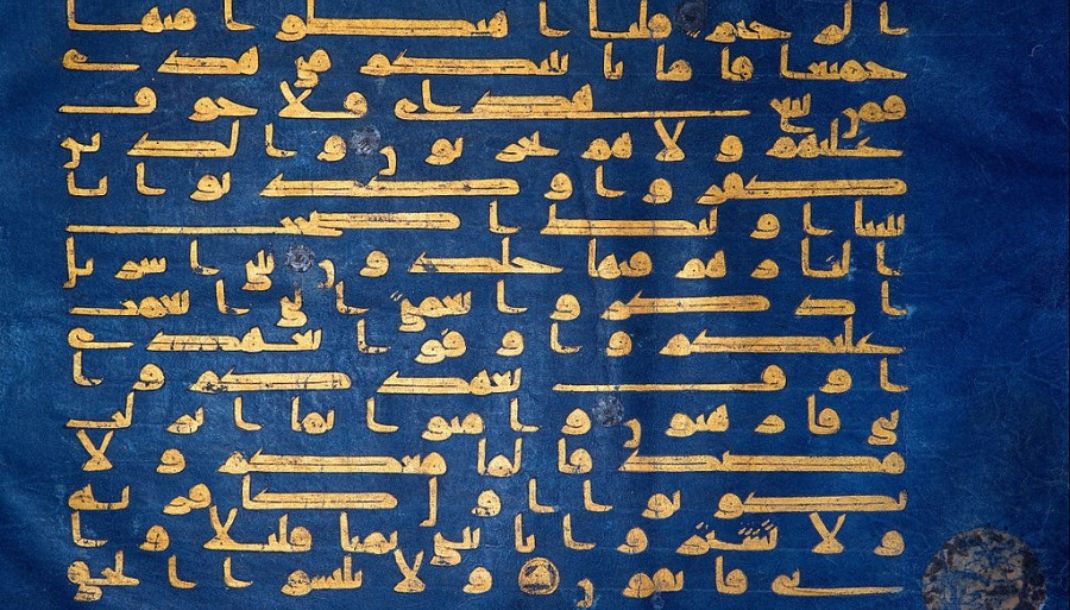 الرحيم قلنا اهبطوا منها
جميعا فاما ياتينكم مني هدى
فمن تبع هداي فلا خوف
عليهم ولا هم يحزنون والذين
كفروا وكذبوا بايا
تنا اولئك اصحب
النار هم فيها خلدون يبني اسرئيل
اذكروا نعمتي التي انعمت
عليكم واوفوا بعهدي
اوف بعهدكم وا
يي فارهبون وامنوا بما انزلت
مصدقا لما معكم ولا
تكونوا اول كافر به
ولا تشتروا بايتي ثمنا قليلا وا
يي فاتقون ولا تلبسوا الحق